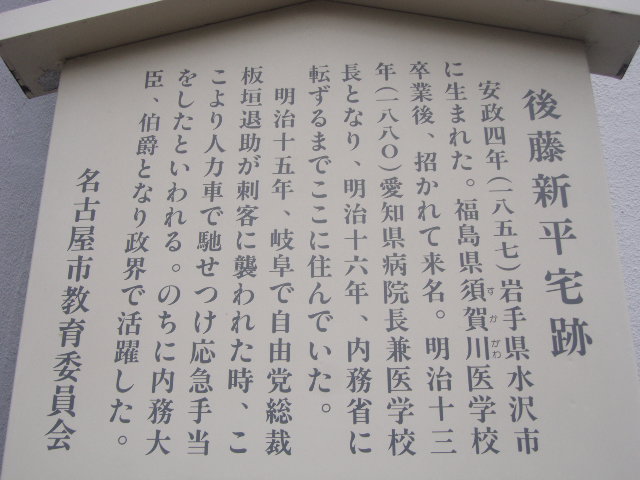 後藤新平宅跡
安政四年(一八五七)岩手県水沢市
に生まれた。福島県須賀川医学校
すかがわ
卒業後、招かれて来名。明治十三
年(一八八〇)愛知県病院長兼医学校
長となり、明治十六年、内務省に
転ずるまでここに住んでいた。
明治十五年、岐阜で自由党総裁
板垣退助が刺客に襲われた時、こ
こより人力車で馳せつけ応急手当
をしたといわれる。のちに内務大
臣、伯爵となり政界で活躍した。
名古屋市教育委員会